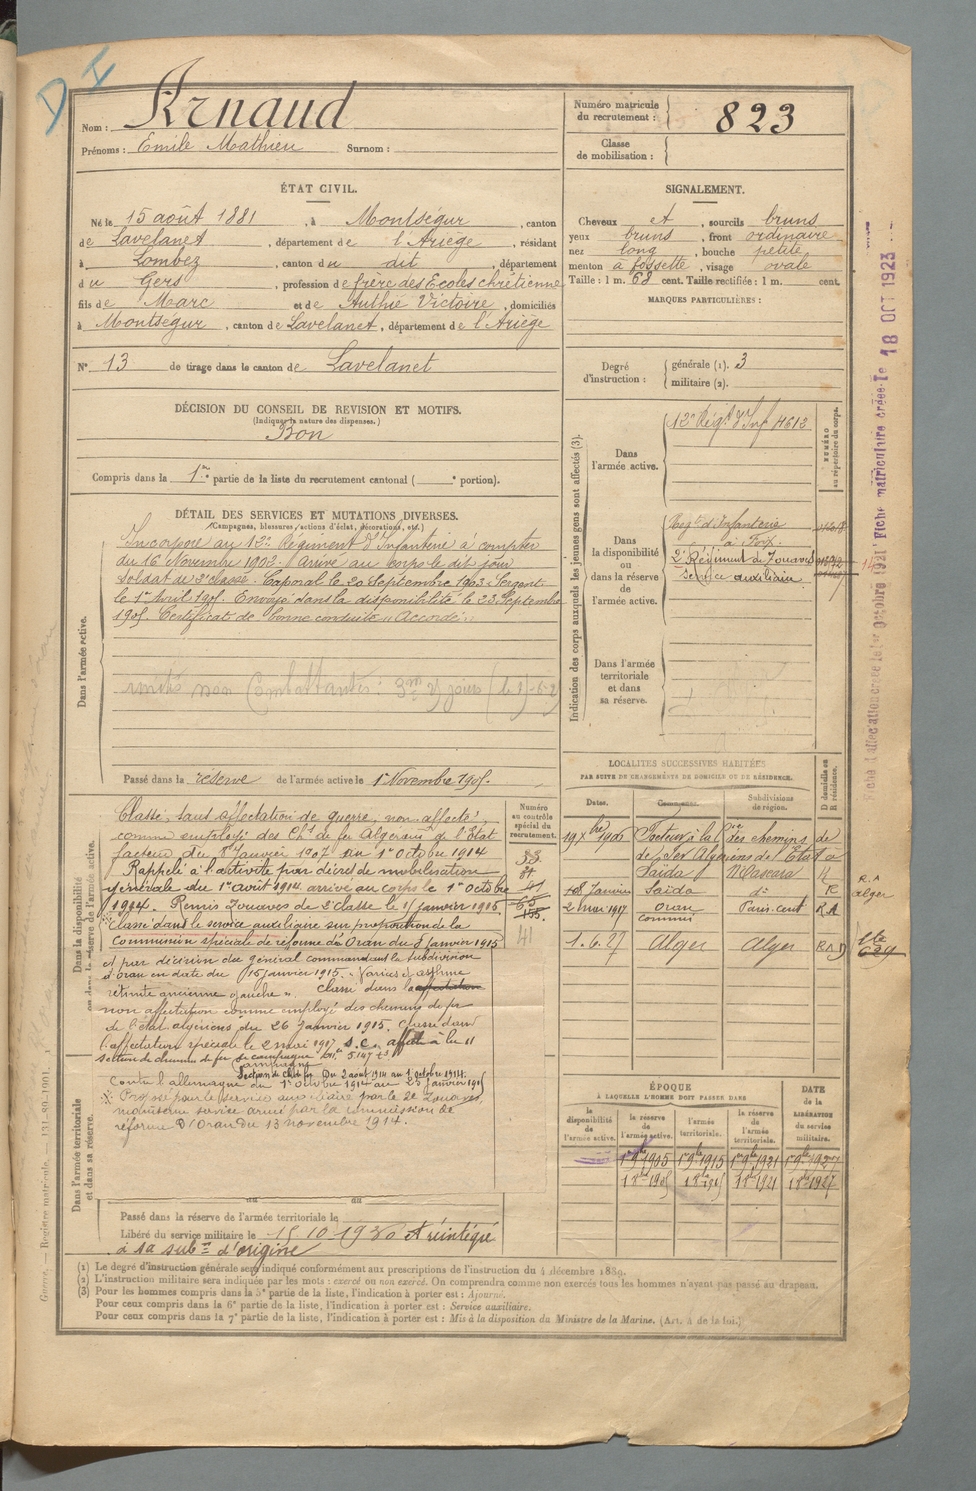 D I
Nom : Arnaud
Prénoms : Emile Mathieu Surnom :
Numéro matricule du recrutement : 823
Classe de mobilisation :
ÉTAT CIVIL.
Né le 15 août 1881, à Montségur, canton
de Lavelanet, département de l'Ariège, résidant
à Lombez, canton du dit, département
du Gers, profession de frère des Ecoles chrétiennes
fils de Marc et de Authie Victoire, domiciliés
à Montségur, canton de Lavelanet, département de l'Ariège
N° 13 de tirage dans le canton de Lavelanet
SIGNALEMENT.
Cheveux et, sourcils bruns
yeux bruns, front ordinaire
nez long, bouche petite
menton à fossette, visage ovale
Taille : 1 m. 68 cent. Taille rectifiée : 1 m. cent.
MARQUES PARTICULIÈRES :
Degré d'instruction : générale (1). 3
militaire (2).
DÉCISION DU CONSEIL DE REVISION ET MOTIFS.
(Indiquer la nature des dispenses.)
Bon
Compris dans la 1re partie de la liste du recrutement cantonal ( portion).
DÉTAIL DES SERVICES ET MUTATIONS DIVERSES.
(Campagnes, blessures, actions d'éclat, décorations, etc.)
Dans l'armée active.
Incorporé au 12e Régiment d'Infanterie à compter
du 16 Novembre 1902. Arrivé au corps le dit jour
soldat de 2e classe. Caporal le 20 Septembre 1903. Sergent
le 1er Avril 1905. Envoyé dans la disponibilité le 23 Septembre
1905. Certificat de bonne conduite "Accordé".
unités non Combattantes :
Passé dans la réserve de l'armée active le 1er Novembre 1905.
Indication des corps auxquels les jeunes gens sont affectés (3).
NUMÉRO au répertoire du corps.
Dans l'armée active.
12e Régt d'Inf 4612
Dans la disponibilité ou dans la réserve de l'armée active.
Regt d'Infanterie
à Foix
2e Régiment de Zouaves
service auxiliaire
Dans l'armée territoriale et dans sa réserve.
LOCALITÉS SUCCESSIVES HABITÉES
PAR SUITE DE CHANGEMENTS DE DOMICILE OU DE RÉSIDENCE.
Dates. Communes. Subdivisions de région. D domicile ou R résidence.
Facteur à la Cie des chemins de
de Fer Algériens de l'Etat à
Saïda Mascara R
Janvier Saïda do R
2 mai 1917 Oran Paris-cent RA
1.6.27 Alger Alger
R.A
alger
Dans la disponibilité ou dans la réserve de l'armée active.
Numéro au contrôle spécial du recrutement.
Classé sans affectation de guerre, non affecté,
comme employé des Chs de fer Algériens de l'Etat
facteur du 8 Janvier 1907 au 1er Octobre 1914
Rappelé à l'activité par décret de mobilisation
générale du 1er août 1914 arrivé au corps le 1er Octobre
1914. Remis Zouaves de 2e classe le
Classé dans le service auxiliaire sur proposition de la
Commission spéciale de réforme de Oran du 8 Janvier 1915
et par décision du général commandant la subdivision
d'Oran en date du 15 janvier 1915.
Classé dans
non affectation comme employé des chemins de fer
de l'état algériens du 26 janvier 1915. Classé dans
l'affectation spéciale le 2 mai 1917 affecté à la 11
section de chemins de fer de campagne
Section de Ch de fer Du 2 août 1914 au 1 octobre 1914.
Contre l'allemagne du 1er octobre 1914 au 25 janvier 1915
Proposé pour le service auxiliaire par le 2e Zouaves
maintenu service armé par la commission de
réforme d'Oran du 13 novembre 1914.
41
Dans l'armée territoriale et dans sa réserve.
du au
Passé dans la réserve de l'armée territoriale le
Libéré du service militaire le 15 10 1930 et réintégré
à sa subon d'origine
ÉPOQUE
À LAQUELLE L'HOMME DOIT PASSER DANS
la disponibilité de l'armée active. la réserve de l'armée active. l'armée territoriale. la réserve de l'armée territoriale. DATE de la LIBÉRATION du service militaire.
1er 9bre 1905 1er 9bre 1915 1er 9bre 1921 1er 9bre 1927
(1) Le degré d'instruction générale sera indiqué conformément aux prescriptions de l'instruction du 4 décembre 1889.
(2) L'instruction militaire sera indiquée par les mots : exercé ou non exercé. On comprendra comme non exercés tous les hommes n'ayant pas passé au drapeau.
(3) Pour les hommes compris dans la 5e partie de la liste, l'indication à porter est : Ajourné.
Pour ceux compris dans la 6e partie de la liste, l'indication à porter est : Service auxiliaire.
Pour ceux compris dans la 7e partie de la liste, l'indication à porter est : Mis à la disposition du Ministre de la Marine. (Art. 4 de la loi.)
Guerre. — Registre matricule. — 131-80-1901.
Fiche matriculaire créée le 18 OCT 1923
Fiche d'affectation créée le 1er Octobre 1921